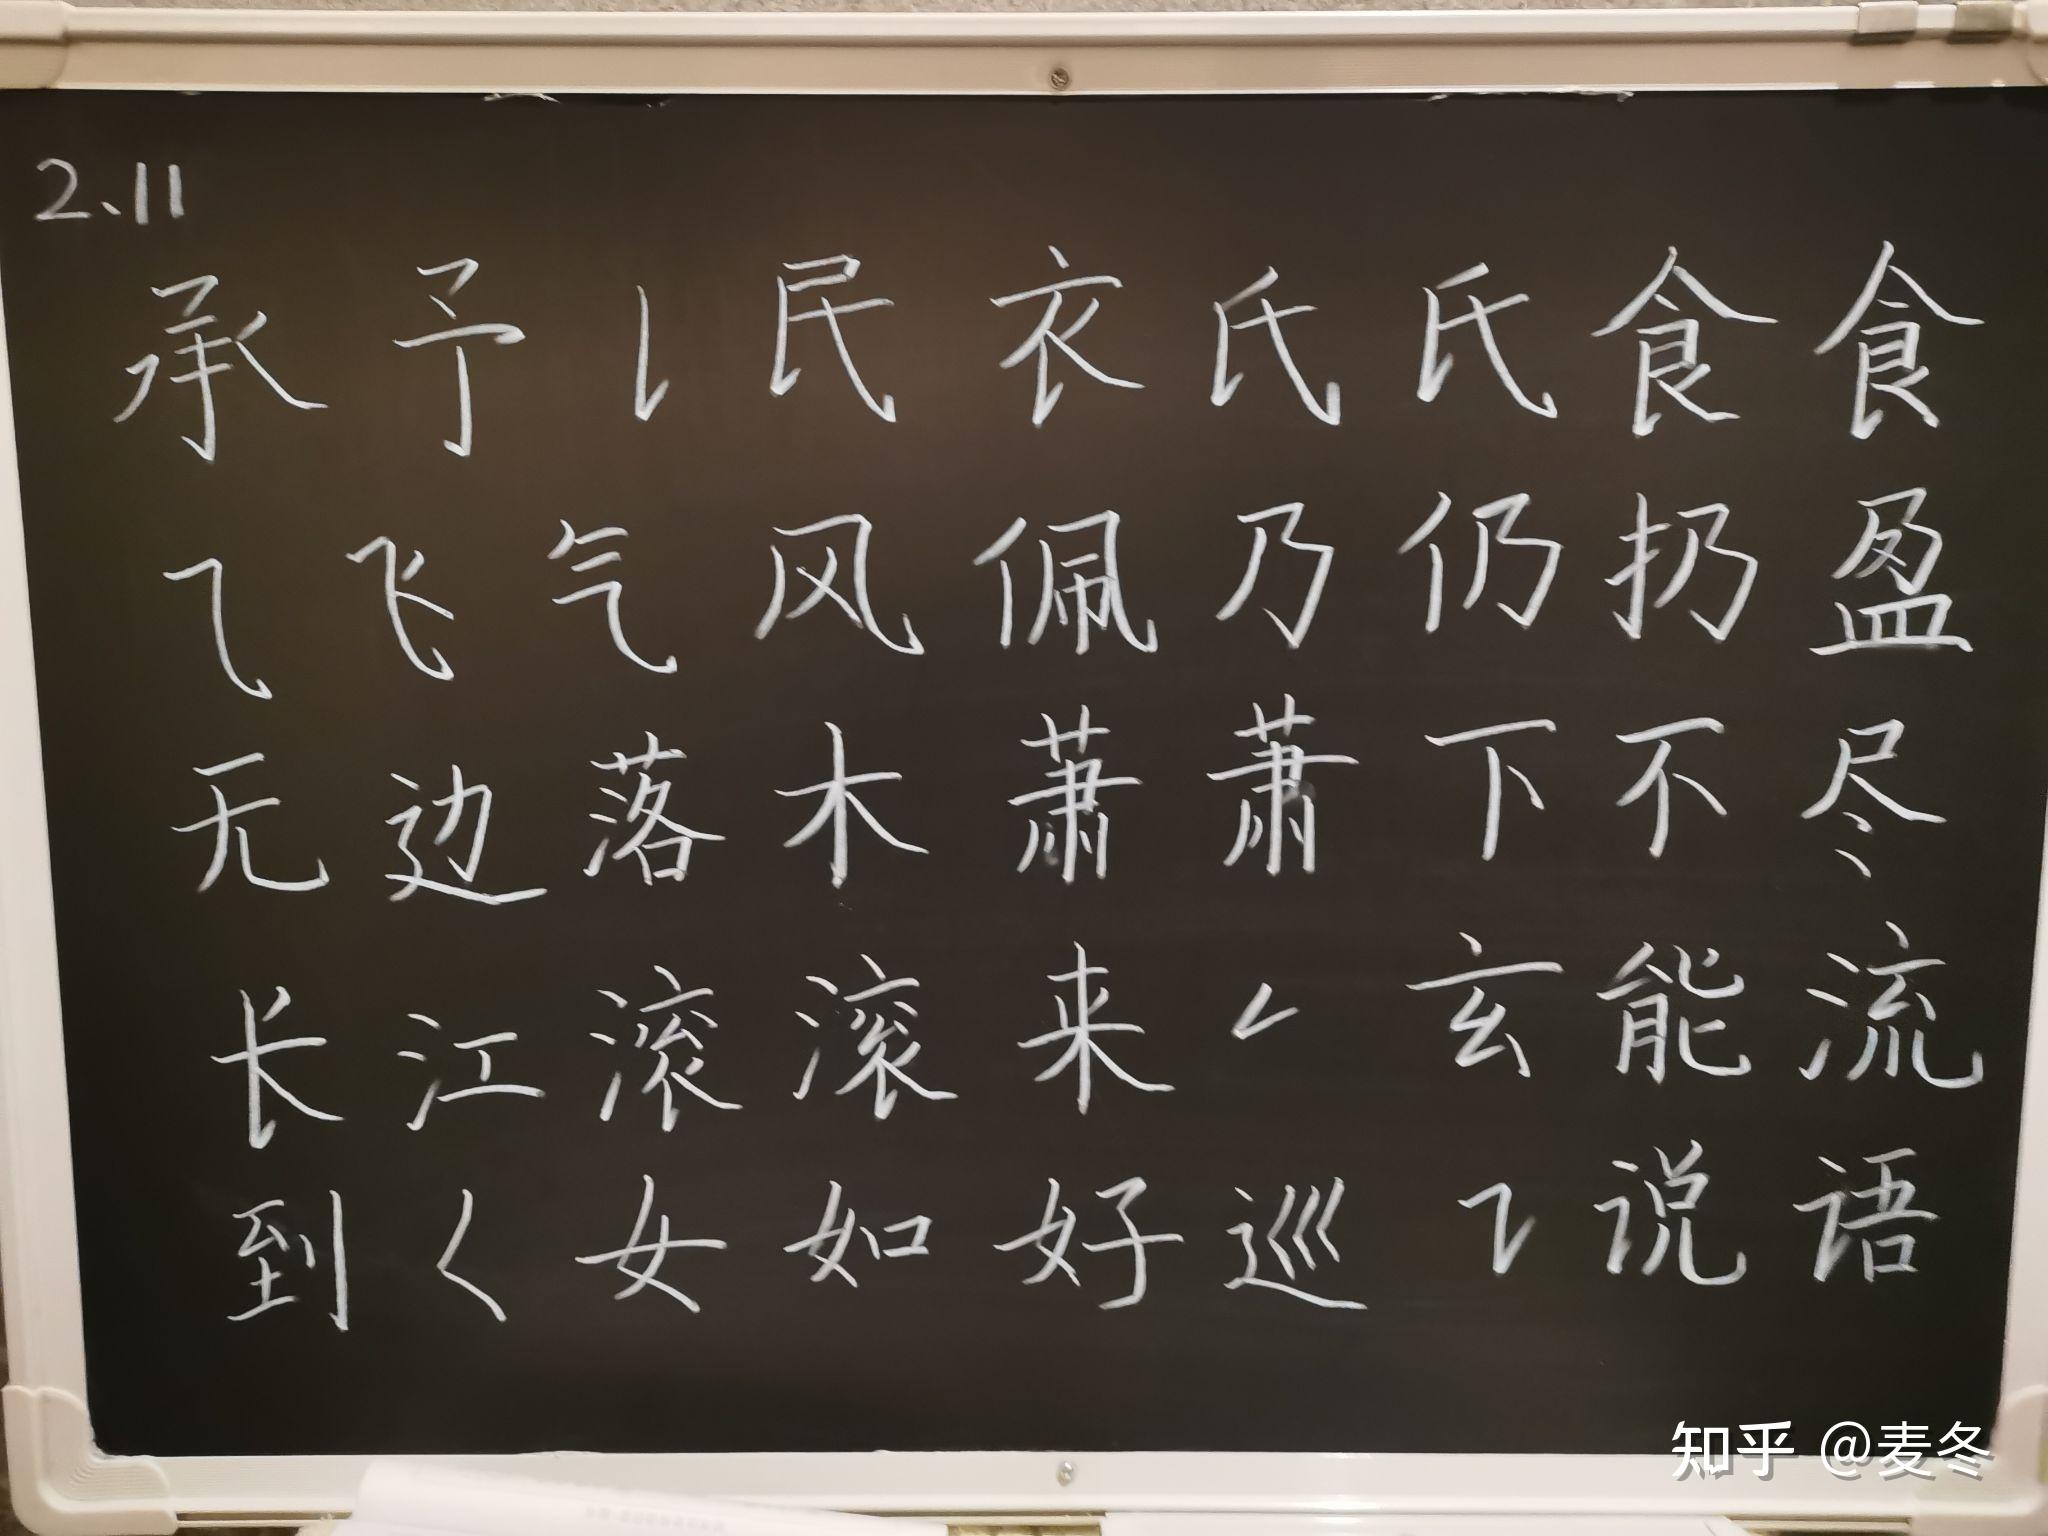 2.11
承 予 𠄌 民 衣 氏 氏 食 食
⺄ 飞 气 风 佩 乃 仍 扔 盈
无 边 落 木 萧 萧 下 不 尽
长 江 滚 滚 来 𠃋 玄 能 流
到 𡿨 女 如 好 巡 ㇊ 说 语
知乎 @麦冬